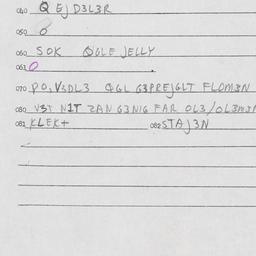 040 Q EJD3L3R
050 O
060 SOK QGLE JELLY
061 O
070 PO,V3DL3 QGL G3PREJGLT FLOM3N
080 V3T NIT ZAN G3NIG FAR OL3/OL3M3R
081 KLEK+ 082 STAJ3N